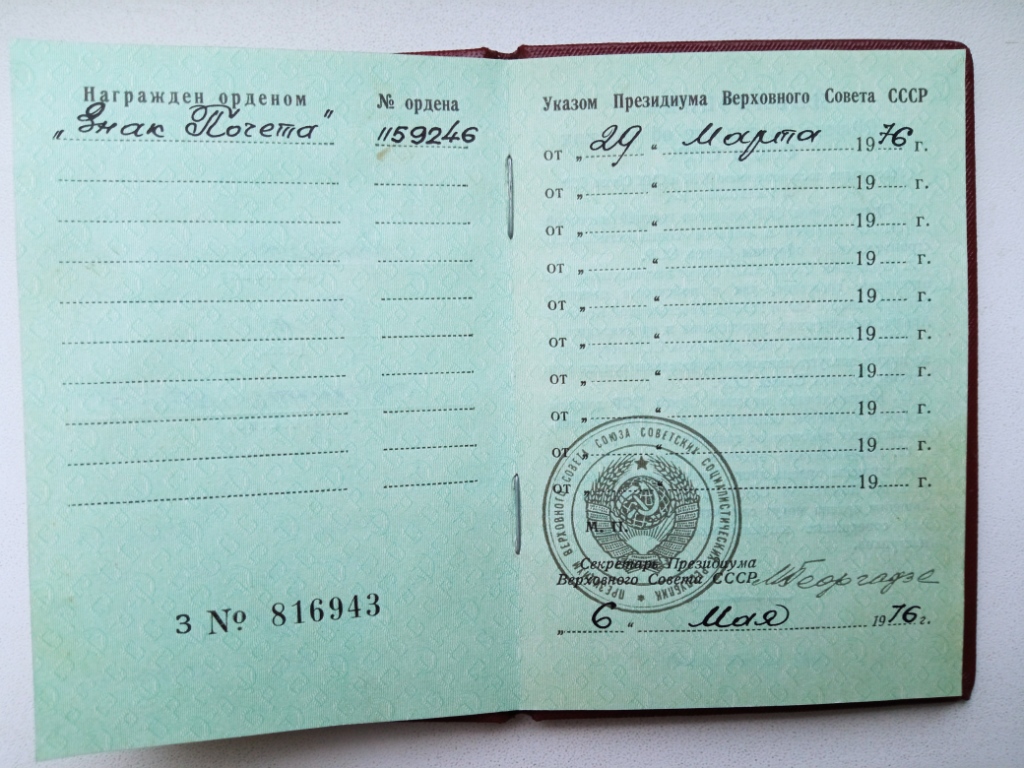 Награжден орденом
№ ордена
„Знак Почета"
1159246
З № 816943
Указом Президиума Верховного Совета СССР
от „ 29 “ Марта 1976 г.
от „ “ 19 г.
от „ “ 19 г.
от „ “ 19 г.
от „ “ 19 г.
от „ “ 19 г.
от „ “ 19 г.
от „ “ 19 г.
от „ “ 19 г.
от „ “ 19 г.
ПРЕЗИДИУМ ВЕРХОВНОГО СОВЕТА СОЮЗА СОВЕТСКИХ СОЦИАЛИСТИЧЕСКИХ РЕСПУБЛИК
М. П.
Секретарь Президиума
Верховного Совета СССР МГеоргадзе
„ 6 “ Мая 1976 г.